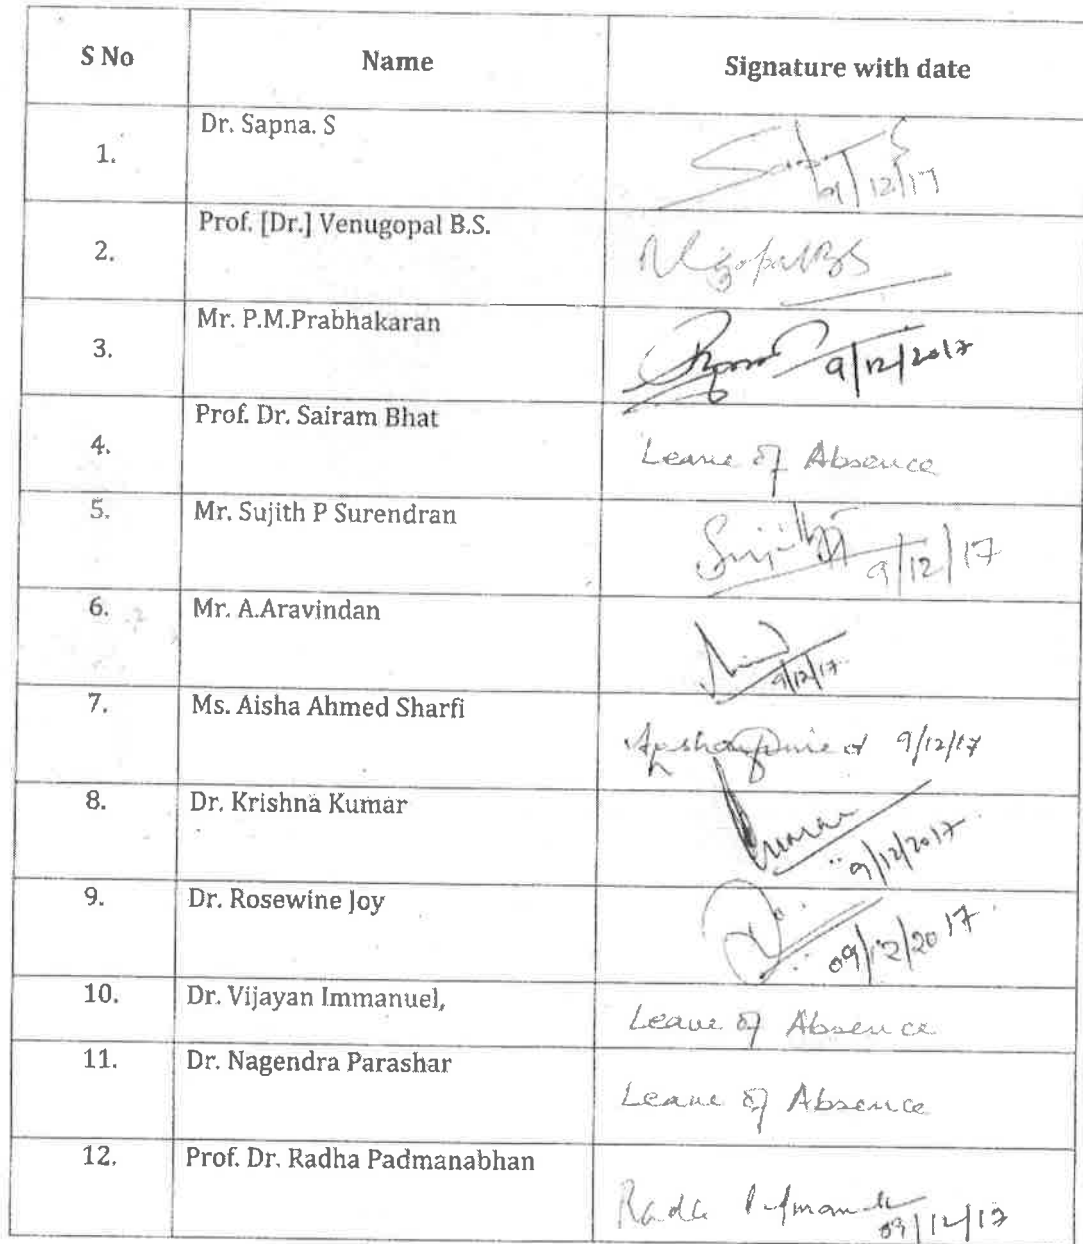 S No Name Signature with date
1. Dr. Sapna. S 9/12/17
2. Prof. [Dr.] Venugopal B.S.
3. Mr. P.M.Prabhakaran 9/12/2017
4. Prof. Dr. Sairam Bhat Leave of Absence
5. Mr. Sujith P Surendran Sujith 9/12/17
6. Mr. A.Aravindan 9/12/17
7. Ms. Aisha Ahmed Sharfi 9/12/17
8. Dr. Krishna Kumar 9/12/2017
9. Dr. Rosewine Joy 09/12/2017
10. Dr. Vijayan Immanuel, Leave of Absence
11. Dr. Nagendra Parashar Leave of Absence
12. Prof. Dr. Radha Padmanabhan 09/12/17